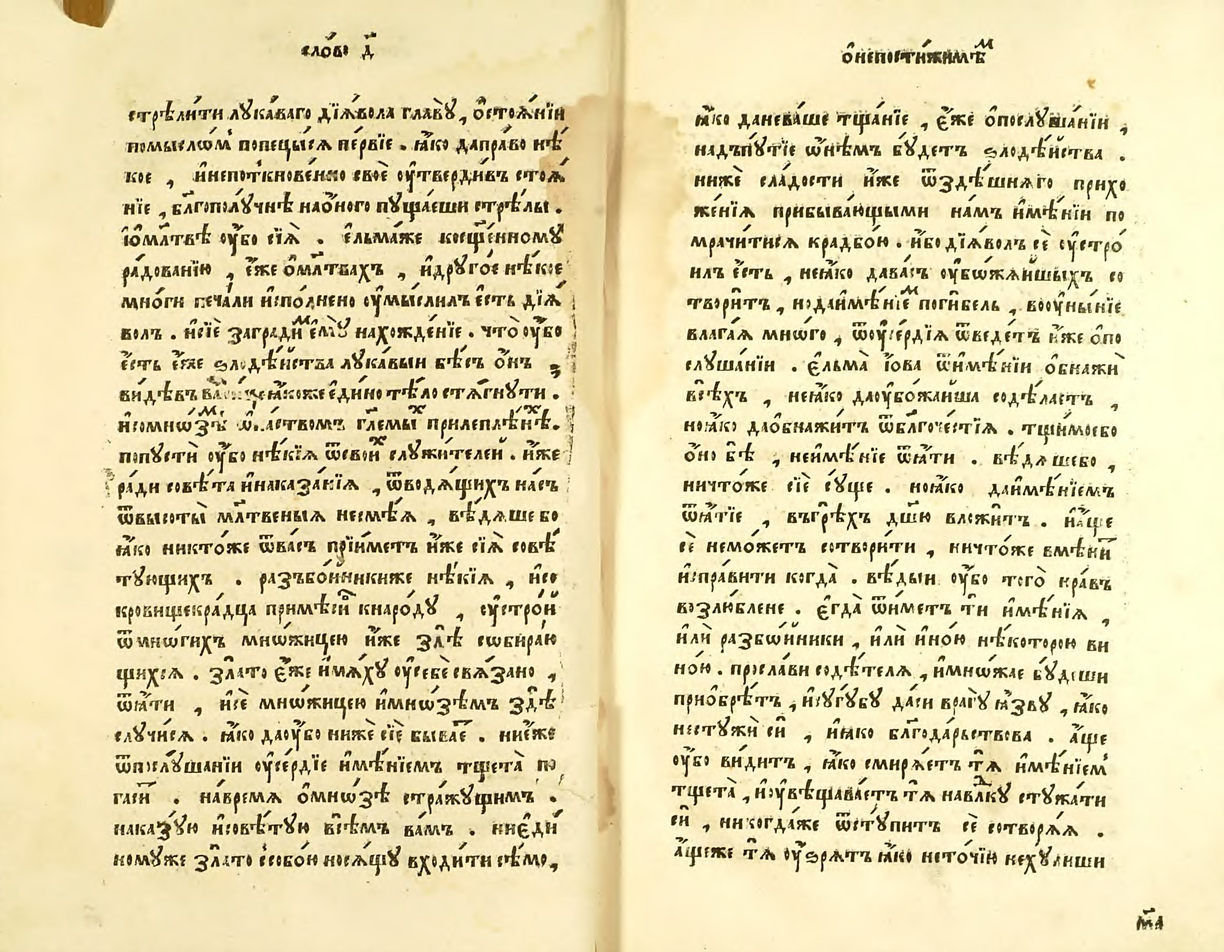 сло́во д҃
стрѣли́ти лꙋка́ваго дїѧ́вола главꙋ̀, ѡ҆стоѧ́нїи
помысло́мъ попецы́сѧ пе́рвїе. ꙗ҆́ко дапра́во нѣ́
кое, и҆непоткнове́нно своѐ ᲂу҆тверди́въ стоѧ́
нїе, бл҃гополꙋ́чнѣ наѻ҆́ного пꙋща́еши стрѣ́лы.
і҆ѡмл҃твѣ ᲂу҆́бо сїѧ̀. є҆льма́же косще́нномꙋ
ра́дованїю, є҆́же ѡ҆мл҃твахъ, и҆дрꙋго́е нѣ́кое
мно́ги печа́ли и҆спо́лнено ᲂу҆мы́слилъ є҆́сть дїѧ́
волъ. и҆сїѐ загради́м є҆мꙋ̀ нахожде́нїе. что̀ ᲂу҆́бо
є҆́сть є҆́же ѕлодѣ́йства лꙋка́выи бѣ́съ ѻ҆́нъ,
ви́дѣвъ ꙗ҆́коже є҆ди́но тѣ́ло стѧ́гнꙋти.
и҆сомно́зѣм гл҃емых прилепле́нїе.
попꙋстѝ ᲂу҆́бо нѣ́кїѧ ѿсвои́х слꙋжи́телеи. и҆́же
ра́ди совѣ́та и҆наказа́нїѧ, ѿводѧ́щихъ на́съ
ѿвысоты̀ мл҃твеныѧ несмѣ́ѧ, вѣ́дѧше бо
ꙗ҆́ко никто́же ѿва́съ прїи́метъ и҆́же сїѧ̀ совѣ́
тꙋющихъ. разъбо́иникиже нѣ́кїѧ, и҆со
кро́вищекра́дца примѣсѝ кнаро́дꙋ, ᲂу҆стро́и
ѿмно́гихъ мно́жицею и҆́же здѣ̀ собира́ю
щихсѧ. зла́то є҆́же и҆мѧ́хꙋ ᲂу҆себѐ свѧ́зано,
ѿѧ́ти, и҆сѐ мно́жицею и҆мно́зѣмъ здѣ̀
слꙋчи́сѧ. ꙗ҆́ко даᲂу҆́бо нижѐ сїѐ быва́ет. ниє҆́же
ѿпослꙋ́шанїи ᲂу҆се́рдїе и҆мѣ́нїемъ тщета̀ по
гаси́т. на́время ѡ҆мно́зѣ стра́жꙋщимъ.
наказꙋ́ю и҆совѣ́тꙋю всѣ́мъ ва́мъ. ниє҆ди́
номꙋже зла́то с̾собо́ю носѧ́щꙋ входи́ти сѣ́мо,
ѡ҆непостижи́мѣм
ꙗ҆́ко даневаше тща́нїе, є҆́же ѡ҆послꙋ́шанїи,
надъпꙋ́тїе ѡ҆не́мъ бꙋ́детъ ѕлодѣ́йства.
нижѐ сла́дости и҆́же ѿзде́шнѧго прихо
же́нїѧ прибыва́ющыми на́мъ и҆мѣ́нїи по
мрачи́тисѧ кра́дбою. и҆́бо дїѧ́волъ сѐ ᲂу҆стро́
илъ є҆́сть, неꙗ҆́ко дава́съ ᲂу҆бо́жѧишыхъ со
твори́тъ, нодаи҆мѣ́нїем поги́бель, воᲂу҆ны́нїе
влага́ѧ мно́го, ѿᲂу҆се́рдїѧ ѿведе́тъ и҆́же ѡ҆по
слꙋ́шанїи. є҆льма̀ і҆́ова ѿи҆мѣ́нїи ѻ҆бнажѝ
всѣ́хъ, неꙗ҆́ко даᲂу҆божа́иша содѣ́ластъ,
ноꙗ҆́ко даѻ҆бнажи́тъ ѿблагоче́стїѧ. тщи́моебо
ѻ҆но бѣ̀, неи҆мѣ́нїе ѿѧ́ти. вѣ́дѧшебо,
ничто́же сїѐ сꙋ́ще. ноꙗ҆́ко даи҆мѣ́нїемъ
ѿѧ́тїе, въгрѣ́хъ дш҃ю вложи́тъ. и҆а҆́ще
сѐ немо́жетъ сотвори́ти, ничто́же вмѣнѝ
и҆спра́вити когда̀. вѣ́дыи ᲂу҆́бо того̀ нра́въ
возлю́блене. є҆гда̀ ѿи́метъ тѝ и҆мѣ́нїѧ,
и҆лѝ разбо́иники, и҆лѝ и҆но́ю нѣ́которою ви
но́ю. просла́ви содѣ́телѧ, и҆мно́жае бꙋ́деши
приѻ҆брѣ́тъ, и҆сꙋгꙋ́бꙋ да́си врагꙋ̀ ꙗ҆́звꙋ, ꙗ҆́ко
нестꙋжѝ сѝ, и҆ꙗ҆́ко бл҃года́рьствова. а҆́ще
ᲂу҆́бо ви́дитъ, ꙗ҆́ко смирѧ́етъ тѧ̀ и҆мѣ́нїем
тщета̀, и҆ᲂу҆вѣщава́етъ тѧ̀ навлⷣкꙋ стꙋжа́ти
сѝ, никогда́же ѿстꙋ́питъ сѐ сотворѧ́ѧ.
а҆́щеже тѧ̀ ᲂу҆́зрѧтъ ꙗ҆́ко нето́чїю нехꙋ́лиши
м҃а